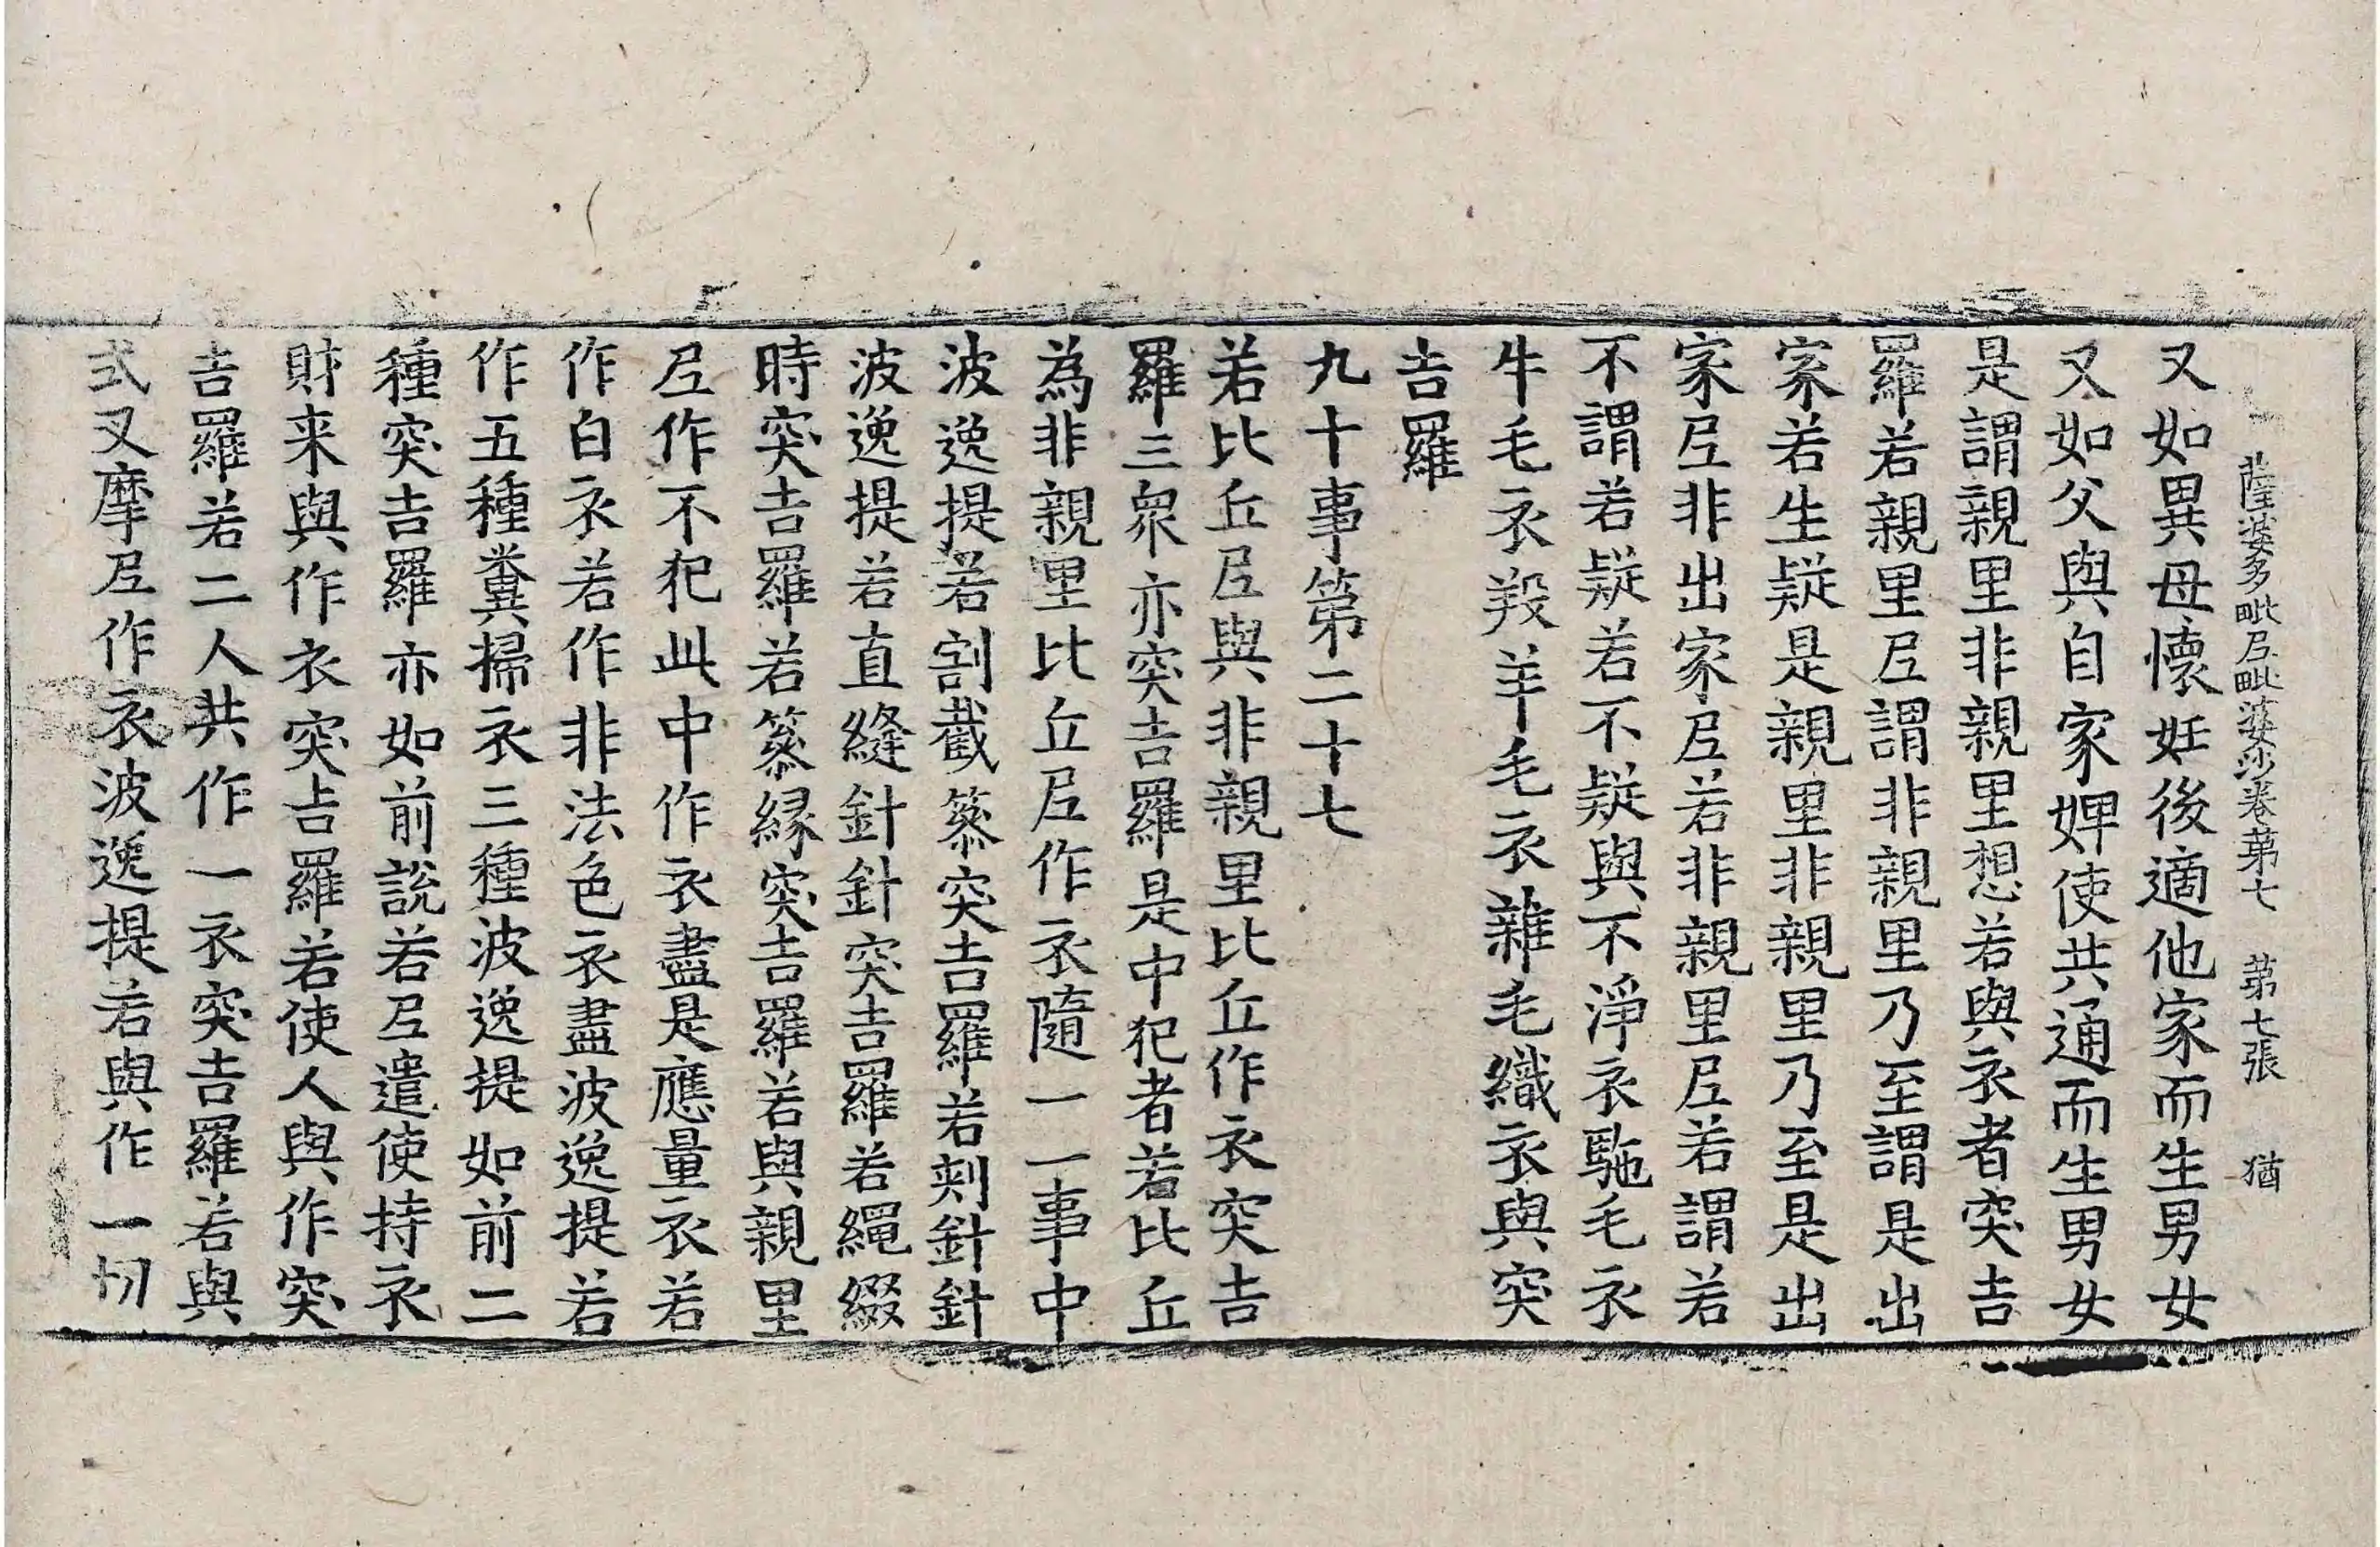 薩婆多毗尼毗婆沙卷第七 第七張 猶
又如異母懷妊後適他家而生男女
又如父與自家婢使共通而生男女
是謂親里非親里想若與衣者突吉
羅若親里尼謂非親里乃至謂是出
家若生疑是親里非親里乃至是出
家尼非出家尼若非親里尼若謂若
不謂若疑若不疑與不淨衣駞毛衣
牛毛衣羖羊毛衣雜毛織衣與突
吉羅
九十事第二十七
若比丘尼與非親里比丘作衣突吉
羅三衆亦突吉羅是中犯者若比丘
為非親里比丘尼作衣隨一一事中
波逸提若割截篸突吉羅若刾針針
波逸提若直縫針針突吉羅若繩綴
時突吉羅若篸緣突吉羅若與親里
尼作不犯此中作衣盡是應量衣若
作白衣若作非法色衣盡波逸提若
作五種糞掃衣三種波逸提如前二
種突吉羅亦如前說若尼遣使持衣
財来與作衣突吉羅若使人與作突
吉羅若二人共作一衣突吉羅若與
式叉摩尼作衣波逸提若與作一切